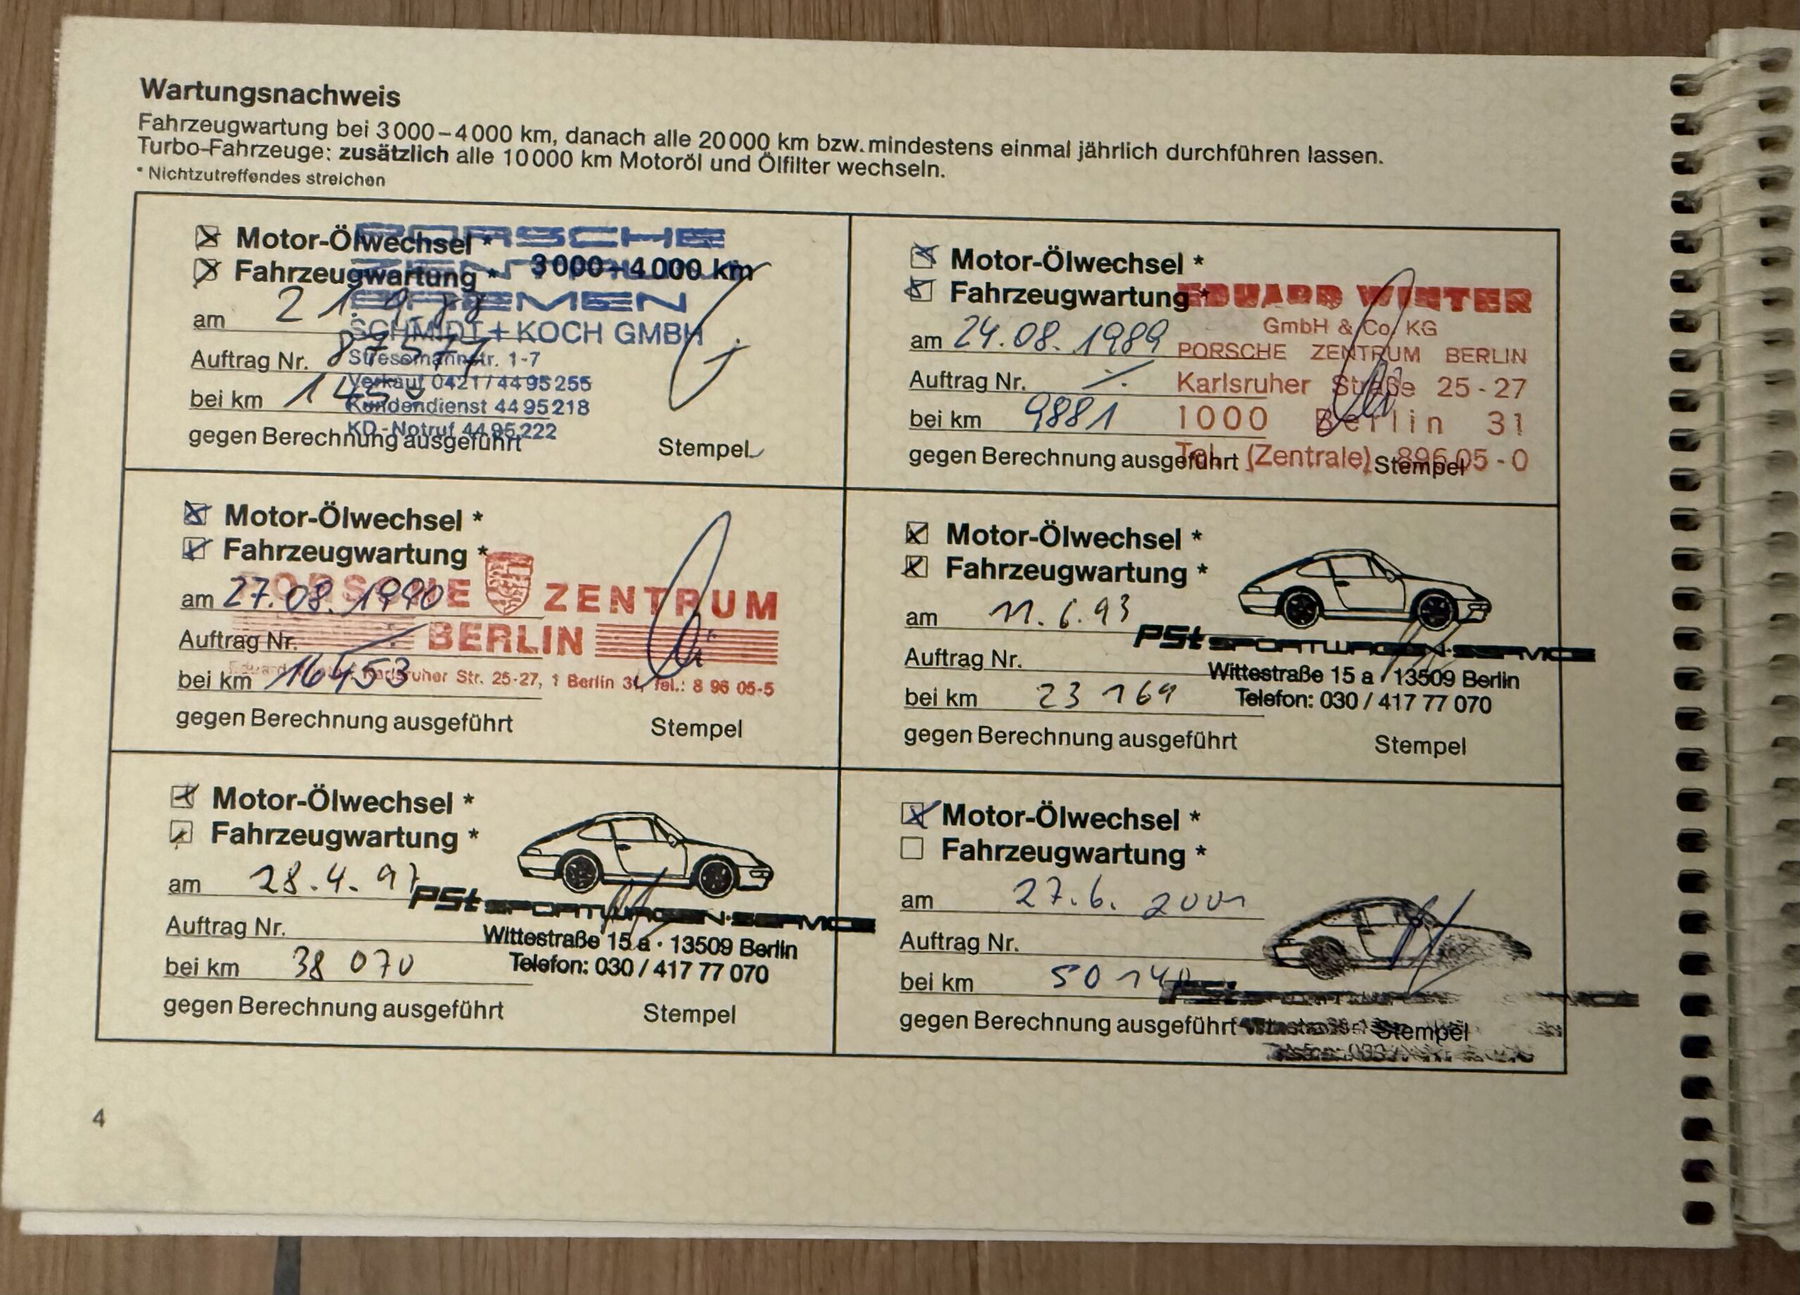 Wartungsnachweis
Fahrzeugwartung bei 3000–4000 km, danach alle 20000 km bzw. mindestens einmal jährlich durchführen lassen.
Turbo-Fahrzeuge: zusätzlich alle 10000 km Motoröl und Ölfilter wechseln.
* Nichtzutreffendes streichen
Motor-Ölwechsel *
Fahrzeugwartung * 3000–4000 km
PORSCHE
BREMEN
SCHMIDT + KOCH GMBH
Stresemannstr. 1-7
Verkauf 0421/4495255
Kundendienst 4495218
KD.-Notruf 4495222
am
Auftrag Nr.
bei km
gegen Berechnung ausgeführt
Stempel
Motor-Ölwechsel *
Fahrzeugwartung *
EDUARD WINTER
GmbH & Co. KG
PORSCHE ZENTRUM BERLIN
Karlsruher Straße 25-27
1000 Berlin 31
Tel. (Zentrale) 896 05-0
am 24.08.1989
Auftrag Nr. ./.
bei km 9881
gegen Berechnung ausgeführt
Stempel
Motor-Ölwechsel *
Fahrzeugwartung *
PORSCHE ZENTRUM
BERLIN
Karlsruher Str. 25-27, 1 Berlin 31, Tel.: 8 96 05-5
am 27.08.1990
Auftrag Nr.
bei km 16453
gegen Berechnung ausgeführt
Stempel
Motor-Ölwechsel *
Fahrzeugwartung *
am 11.6.93
PSt SPORTWAGEN-SERVICE
Wittestraße 15 a / 13509 Berlin
Telefon: 030 / 417 77 070
Auftrag Nr.
bei km 23 169
gegen Berechnung ausgeführt
Stempel
Motor-Ölwechsel *
Fahrzeugwartung *
am 28.4.97
PSt SPORTWAGEN-SERVICE
Wittestraße 15 a · 13509 Berlin
Telefon: 030 / 417 77 070
Auftrag Nr.
bei km 38 070
gegen Berechnung ausgeführt
Stempel
Motor-Ölwechsel *
Fahrzeugwartung *
am 27.6. 2001
Auftrag Nr.
bei km 50 140
gegen Berechnung ausgeführt
Stempel
4